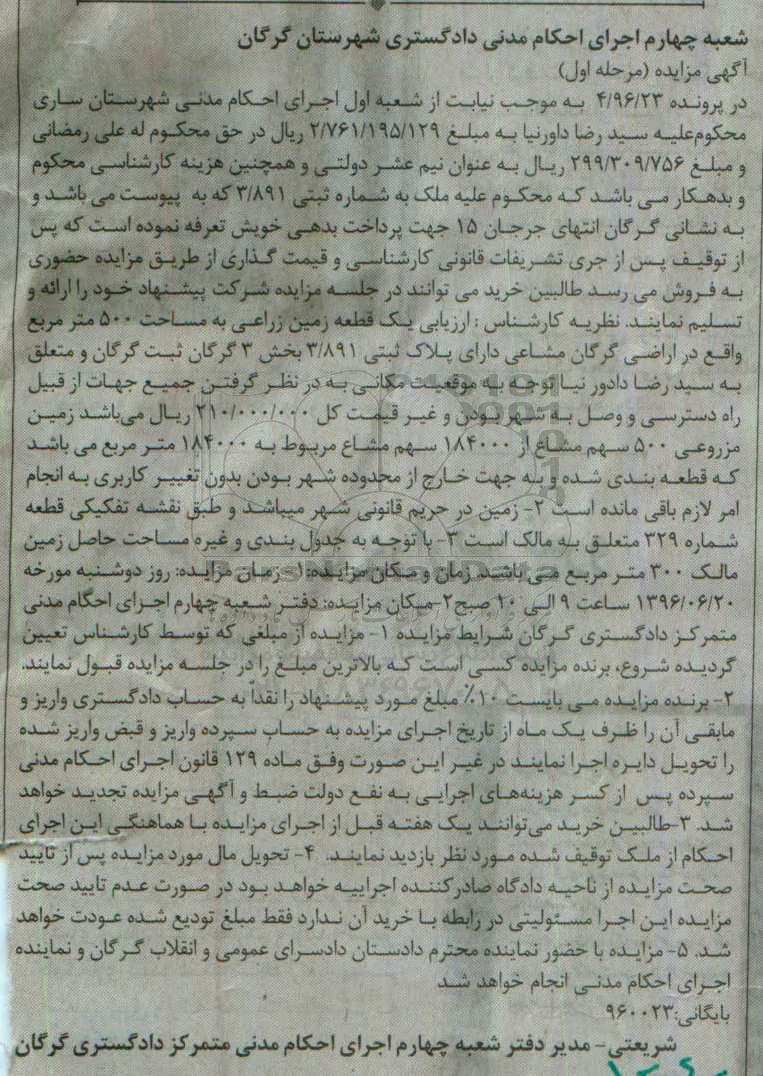 شعبه چهارم اجرای احکام مدنی دادگستری شهرستان گرگان
آگهی مزایده (مرحله اول)
در پرونده ۴/۹۶/۲۳ به موجب نیابت از شعبه اول اجرای احکام مدنی شهرستان ساری
محکوم‌علیه سید رضا داورنیا به مبلغ ۲/۷۶۱/۱۹۵/۱۲۹ ریال در حق محکوم له علی رمضانی
و مبلغ ۲۹۹/۳۰۹/۷۵۶ ریال به عنوان نیم عشر دولتی و همچنین هزینه کارشناسی محکوم
و بدهکار می باشد که محکوم علیه ملک به شماره ثبتی ۳/۸۹۱ که به پیوست می باشد و
به نشانی گرگان انتهای جرجان ۱۵ جهت پرداخت بدهی خویش تعرفه نموده است که پس
از توقیف پس از جری تشریفات قانونی کارشناسی و قیمت گذاری از طریق مزایده حضوری
به فروش می رسد طالبین خرید می توانند در جلسه مزایده شرکت پیشنهاد خود را ارائه و
تسلیم نمایند. نظریه کارشناس : ارزیابی یک قطعه زمین زراعی به مساحت ۵۰۰ متر مربع
واقع در اراضی گرگان مشاعی دارای پلاک ثبتی ۳/۸۹۱ بخش ۳ گرگان ثبت گرگان و متعلق
به سید رضا دادور نیا توجه به موقعیت مکانی به در نظر گرفتن جمیع جهات از قبیل
راه دسترسی و وصل به شهر بودن و غیر قیمت کل ۲۱۰/۰۰۰/۰۰۰ ریال می‌باشد زمین
مزروعی ۵۰۰ سهم مشاع از ۱۸۴۰۰۰ سهم مشاع مربوط به ۱۸۴۰۰۰ متر مربع می باشد
که قطعه بندی شده و به جهت خارج از محدوده شهر بودن بدون تغییر کاربری به انجام
امر لازم باقی مانده است ۲- زمین در حریم قانونی شهر میباشد و طبق نقشه تفکیکی قطعه
شماره ۳۲۹ متعلق به مالک است ۳- با توجه به جدول بندی و غیره مساحت حاصل زمین
مالک ۳۰۰ متر مربع می باشد. زمان و مکان مزایده:۱- زمان مزایده: روز دوشنبه مورخه
۱۳۹۶/۰۶/۲۰ ساعت ۹ الی ۱۰ صبح۲-مکان مزایده: دفتر شعبه چهارم اجرای احکام مدنی
متمرکز دادگستری گرگان شرایط مزایده ۱- مزایده از مبلغی که توسط کارشناس تعیین
گردیده شروع، برنده مزایده کسی است که بالاترین مبلغ را در جلسه مزایده قبول نمایند.
۲- برنده مزایده می بایست ۱۰٪ مبلغ مورد پیشنهاد را نقدا به حساب دادگستری واریز و
مابقی آن را ظرف یک ماه از تاریخ اجرای مزایده به حساب سپرده واریز و قبض واریز شده
را تحویل دایره اجرا نمایند در غیر این صورت وفق ماده ۱۲۹ قانون اجرای احکام مدنی
سپرده پس از کسر هزینه‌های اجرایی به نفع دولت ضبط و آگهی مزایده تجدید خواهد
شد. ۳-طالبین خرید می‌توانند یک هفته قبل از اجرای مزایده با هماهنگی این اجرای
احکام از ملک توقیف شده مورد نظر بازدید نمایند. ۴- تحویل مال مورد مزایده پس از تایید
صحت مزایده از ناحیه دادگاه صادرکننده اجراییه خواهد بود در صورت عدم تایید صحت
مزایده این اجرا مسئولیتی در رابطه با خرید آن ندارد فقط مبلغ تودیع شده عودت خواهد
شد. ۵- مزایده با حضور نماینده محترم دادستان دادسرای عمومی و انقلاب گرگان و نماینده
اجرای احکام مدنی انجام خواهد شد
بایگانی:۹۶۰۰۲۳
شریعتی- مدیر دفتر شعبه چهارم اجرای احکام مدنی متمرکز دادگستری گرگان